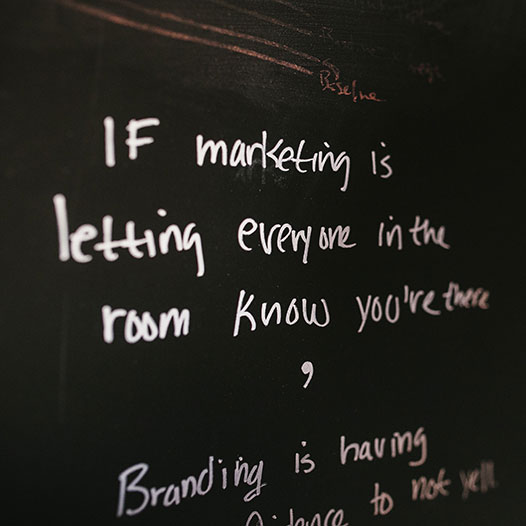 Baseline
IF marketing is
letting everyone in the
room know you're there
,
Branding is having
to not yell